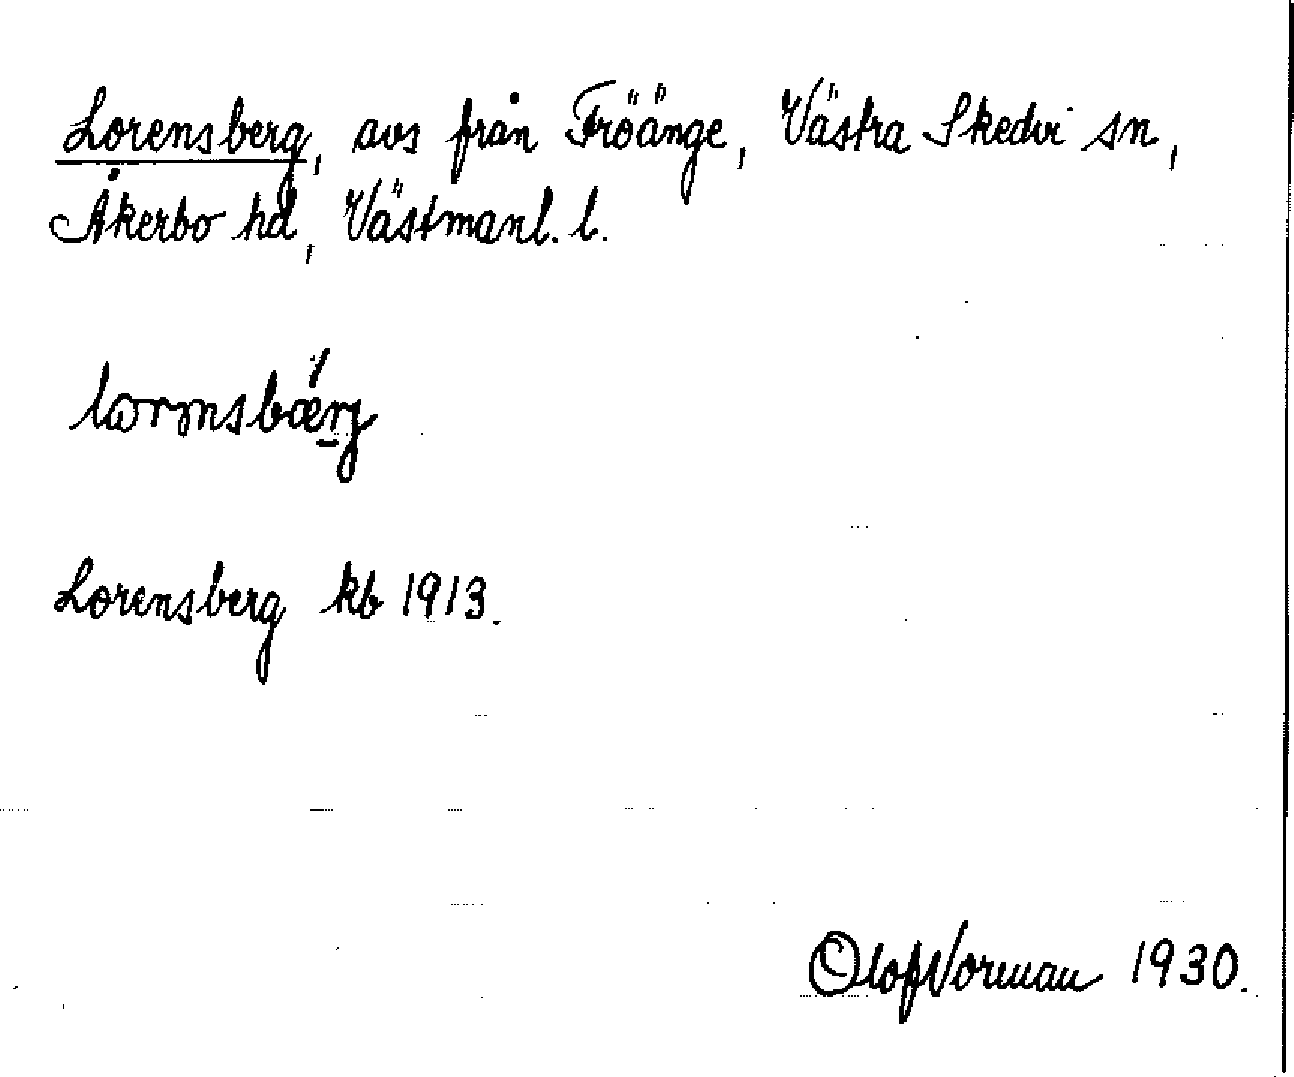 Lorensberg, avs från Fröänge, Västra Skedvi sn,
Åkerbo hd, Västmanl. l.
Lorensberg kb 1913.
Olof Norman 1930.